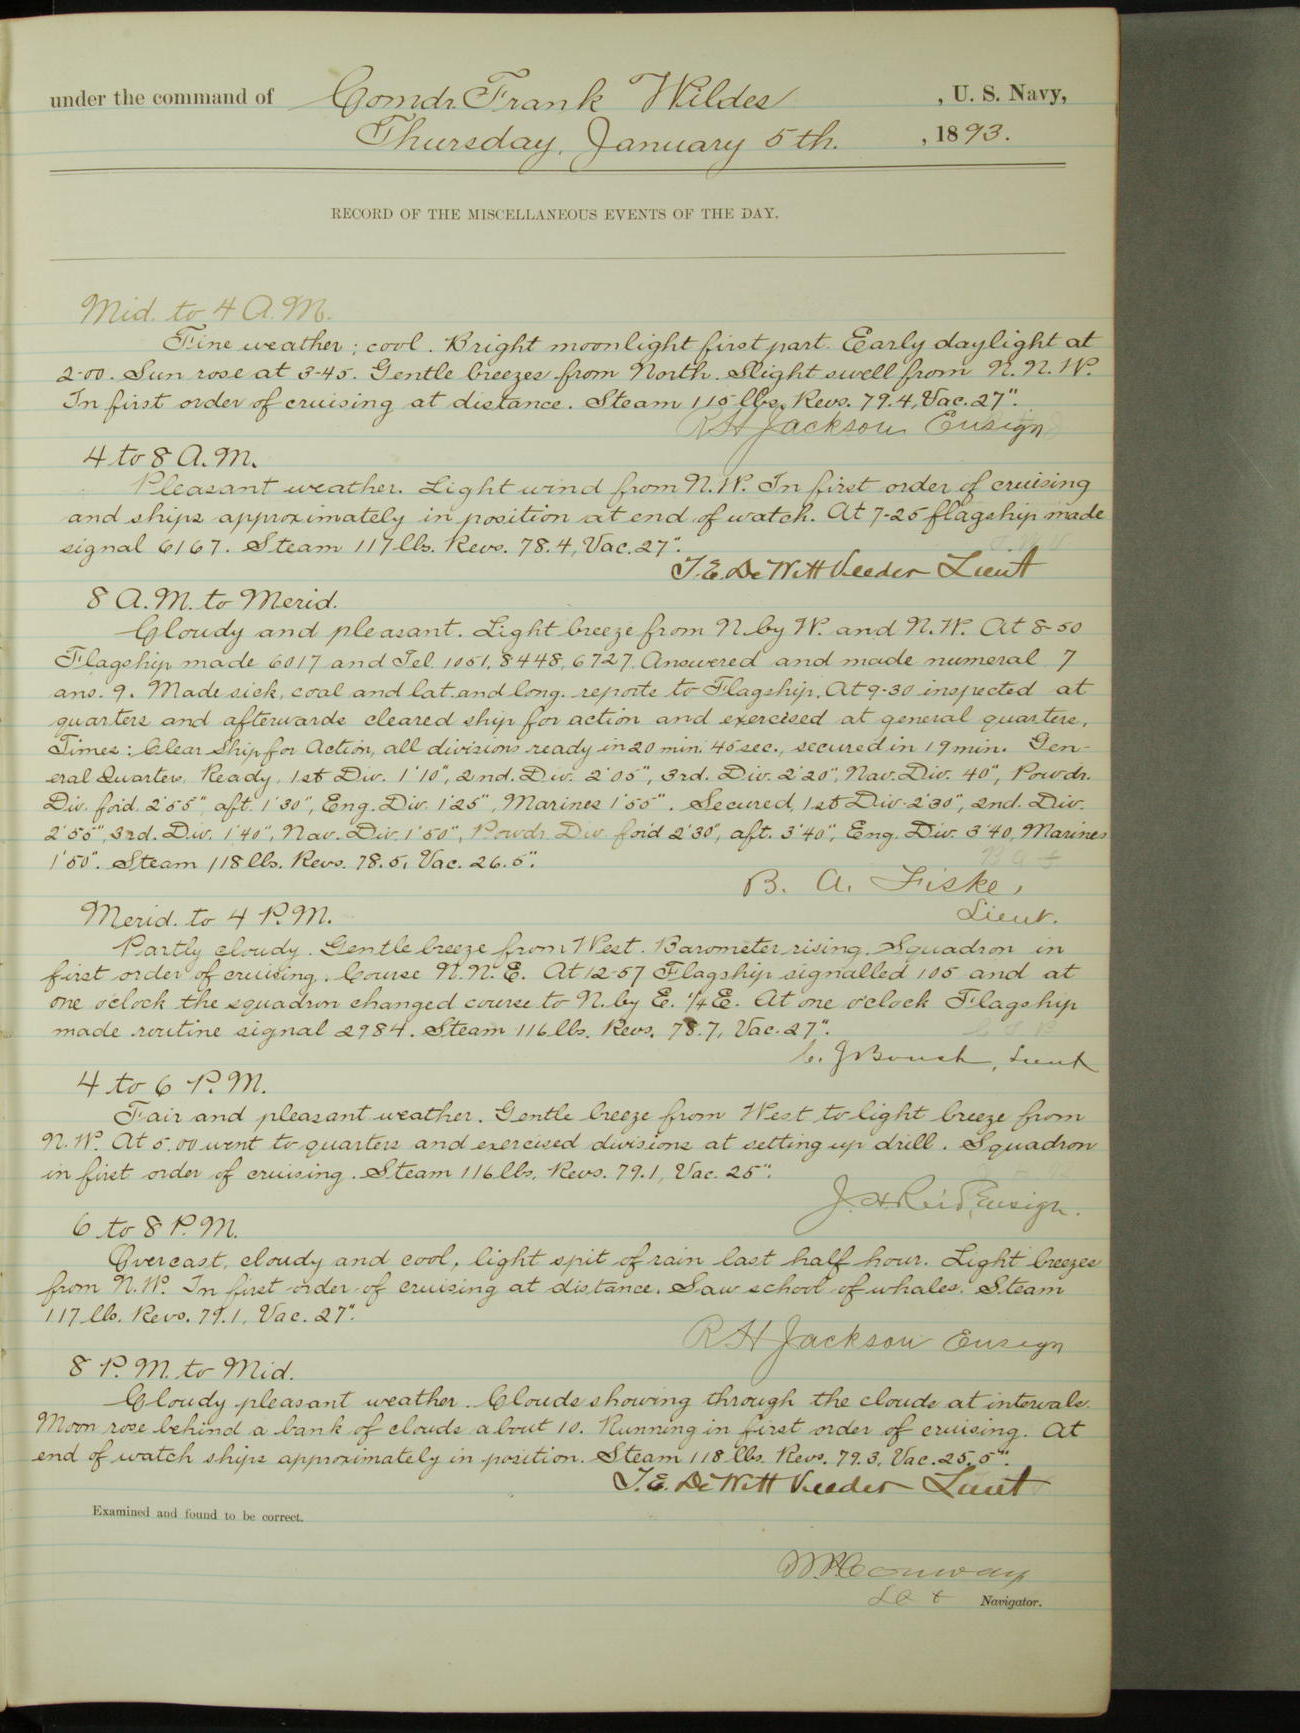 under the command of Comdr. Frank Wildes, U. S. Navy,
Thursday, January 5th., 1893.
RECORD OF THE MISCELLANEOUS EVENTS OF THE DAY.
Mid. to 4 A.M.
Fine weather; cool. Bright moonlight first part. Early daylight at
2-00. Sun rose at 3-45. Gentle breezes from North. Slight swell from N.N.W.
In first order of cruising at distance. Steam 115 lbs, Revs. 79.4, Vac. 27".
R H Jackson Ensign
4 to 8 A.M.
Pleasant weather. Light wind from N.W. In first order of cruising
and ships approximately in position at end of watch. At 7-25 flagship made
signal 6167. Steam 117 lbs. Revs. 78.4, Vac. 27".
T.E. DeWitt Veeder Lieut
8 A.M. to Merid.
Cloudy and pleasant. Light breeze from N. by W. and N.W. At 8-50
Flagship made 6017 and Tel. 1051, 8448, 6727. Answered and made numeral 7
ans. 9. Made sick, coal and lat. and long. reports to Flagship. At 9-30 inspected at
quarters and afterwards cleared ship for action and exercised at general quarters.
Times: Clear Ship for Action, all divisions ready in 20 min. 45 sec., secured in 19 min. Gen-
eral Quarters, Ready, 1st Div. 1'10", 2nd. Div. 2'05", 3rd. Div. 2'20", Nav. Div. 40", Powdr.
Div. for'd. 2'55", aft. 1'30", Eng. Div. 1'25", Marines 1'55". Secured, 1st Div. 2'30", 2nd. Div.
2'55", 3rd. Div. 1'40", Nav. Div. 1'50", Powdr. Div. for'd 2'30", aft. 3'40", Eng. Div. 3'40, Marines
1'50". Steam 118 lbs. Revs. 78.5, Vac. 26.5".
B. A. Fiske,
Lieut.
Merid. to 4 P.M.
Partly cloudy. Gentle breeze from West. Barometer rising. Squadron in
first order of cruising. Course N.N.E. At 12-57 Flagship signalled 105 and at
one o'clock the squadron changed course to N. by E. 1/4 E. At one o'clock Flagship
made routine signal 2984. Steam 116 lbs. Revs. 78.7, Vac. 27".
C. J. Boush, Lieut
4 to 6 P.M.
Fair and pleasant weather. Gentle breeze from West to light breeze from
N.W. At 5.00 went to quarters and exercised divisions at setting up drill. Squadron
in first order of cruising. Steam 116 lbs. Revs. 79.1, Vac. 25".
J. H. Reid, Ensign.
6 to 8 P.M.
Overcast, cloudy and cool, light spit of rain last half hour. Light breezes
from N.W. In first order of cruising at distance. Saw school of whales. Steam
117 lbs. Revs. 79.1, Vac. 27".
R H Jackson Ensign
8 P.M. to Mid.
Cloudy pleasant weather. Clouds showing through the clouds at intervals.
Moon rose behind a bank of clouds about 10. Running in first order of cruising. At
end of watch ships approximately in position. Steam 118 lbs. Revs. 79.3, Vac. 25.5".
T.E. DeWitt Veeder Lieut
Examined and found to be correct.
W.P. Conway
Navigator.